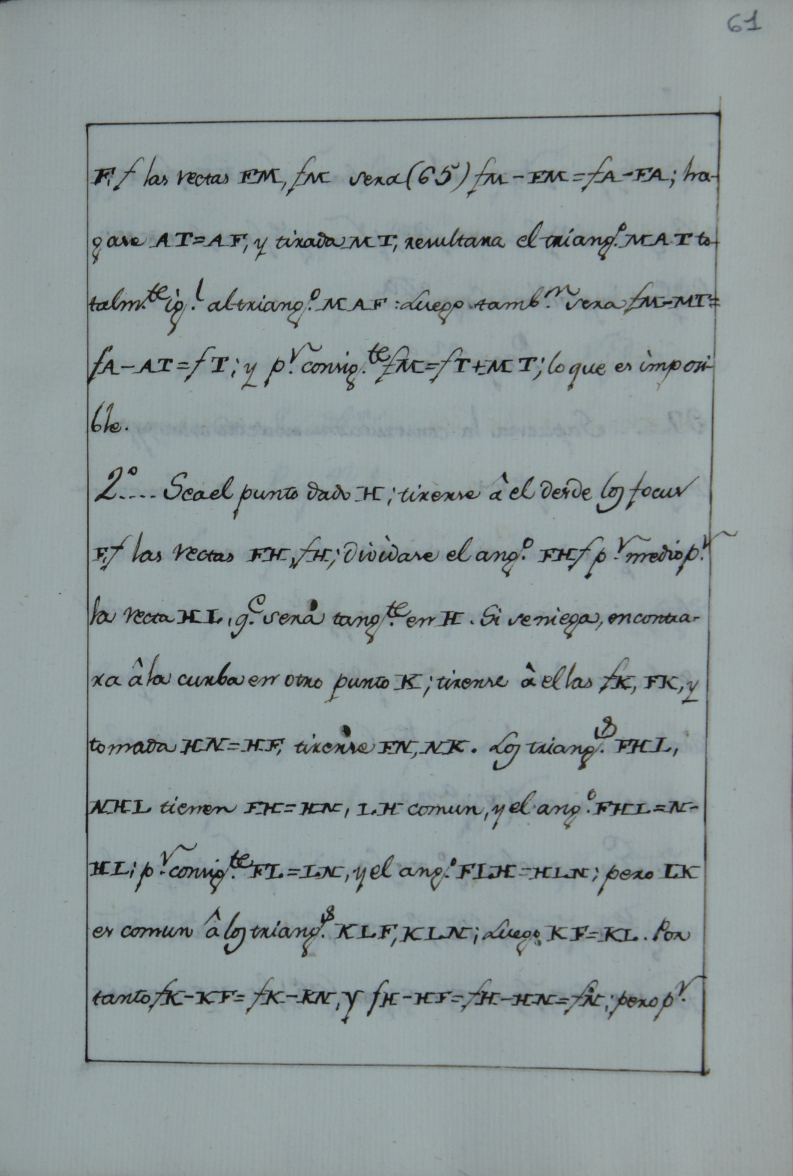 61
F, f las rectas FM, fM sera (65) fM-FM=fA-FA; ha-
gase AT=AF, y tirada MT, resultara el triang.º MAT to-
talm.te ig.l al triang.º MAF: Luego tamb.n sera fM-MT=
fA-AT=fT; y p.r consig.te fM=fT+MT; lo que es imposi-
ble.
2º.... Sea el punto dado H; tirense â el desde los focus
F, f las rectas FH, fH; dividase el ang.º FHf p.r medio p.r
la recta HL, q.e será tang.te en H. Si se niega, encontra-
ra â la curba en otro punto K; tirense â ellas fK, FK, y
tomada HN=HF, tirense FN, NK. Los triang.s FHL,
NHL tienen FH=HN, LH comun, y el ang.º FHL=N-
HL; p.r consig.te FL=LN, y el ang.º FLH=HLN; pero LK
es comun â los triang.s KLF, KLN; Luego KF=KL. Por
tanto fK-KF=fK-KN, y fH-HF=fH-HN=fN; pero p.r